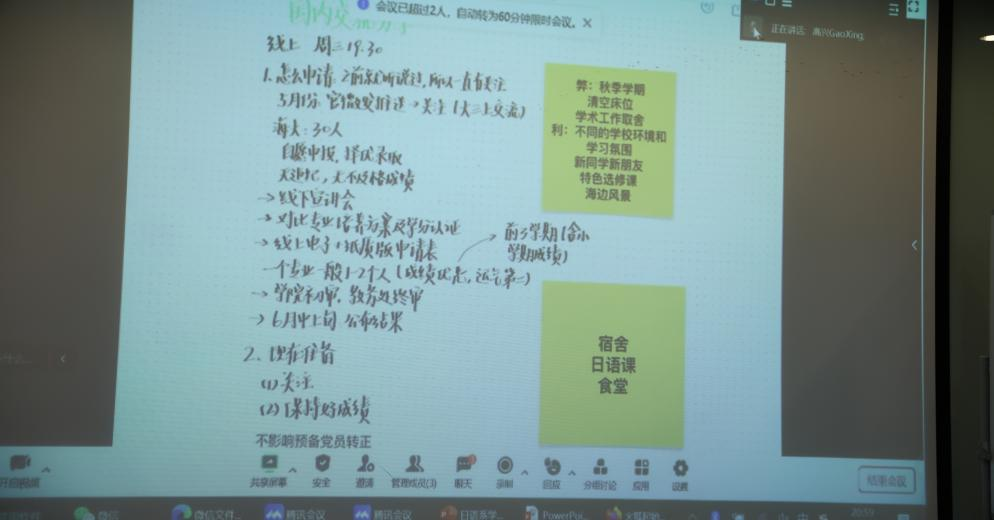 国内交流
会议已超过2人，自动转为60分钟限时会议。
正在讲话: 高兴GaoXing;
线上 周三19.30
1.怎么申请 之前就听说过,所以一直有关注
3月份 官微发推送→关注(大三上交流)
海大:30人
自愿申报,择优录取
无违纪,无不及格成绩
→线下宣讲会
→对比专业培养方案及学分认证
→线上电子+纸质版申请表
前3学期(含小
学期成绩)
一个专业一般1-2个人(成绩优先,运气第二)
→学院初审,教务处终审
→6月中上旬 公布结果
2、现在准备
(1)关注
(2)保持好成绩
不影响预备党员转正
弊：秋季学期
清空床位
学术工作取舍
利：不同的学校环境和
学习氛围
新同学新朋友
特色选修课
海边风景
宿舍
日语课
食堂
开启视频
共享屏幕
安全
邀请
管理成员(3)
聊天
录制
回应
分组讨论
应用
设置
结束会议
微信
微信文件...
腾讯会议
腾讯会议
日语系学...
PowerPoi...
20:59